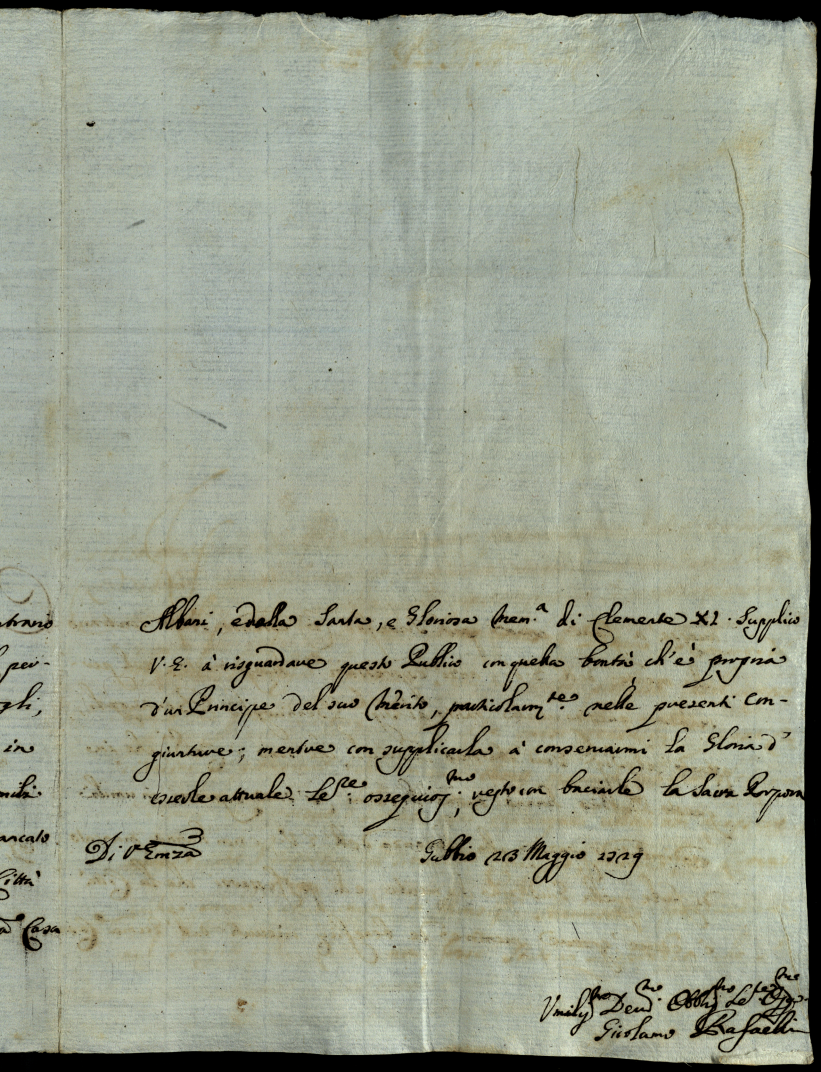 ntrario
l per-
gli,
in
mili
ancato
Città
Casa
Albani, e dalla Santa, e Gloriosa mem.a di Clemente XI. Supplico
V. E. à risguardare questo Publico con quella bontà ch'è propria
d'un Principe del suo merito, particolarm.te nelle presenti con-
giunture; mentre con supplicarla à conservarmi la Gloria d'
essere attuale Se.re ossequios.mo, resto con baciarle la Sacra Porpora
Di V. Emza
Gubbio 23 Maggio 1729
Umiliss.mo Dev.mo Obblig.mo Se.re Oss.mo
Girolamo Rafaelli